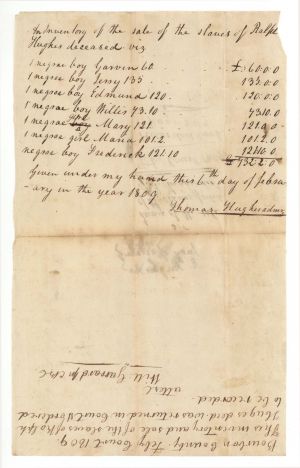 An Inventory of the sale of the slaves of Ralph
Hughes deceased viz
1 negroe boy Garvin 60. £. 60.0.0
1 negroe boy Jerry 133. 133.0.0
1 negroe boy Edmund 120. 120.0.0
1 negroe boy Willis 73.10. 73.10.0
1 negroe Mary 121. 121.0.0
1 negroe girl Maria 101.2. 101.2.0
negroe boy Frederick 121.10 121.10.0
Given under my hand this 6th day of febru
-ary in the year 1809
Thomas Hughes
Bourbon County July Court 1809
This inventory and sale of the slaves of Ralph
Hughes decd. was returned in Court & ordered
to be recorded.
attest
Will Garrard